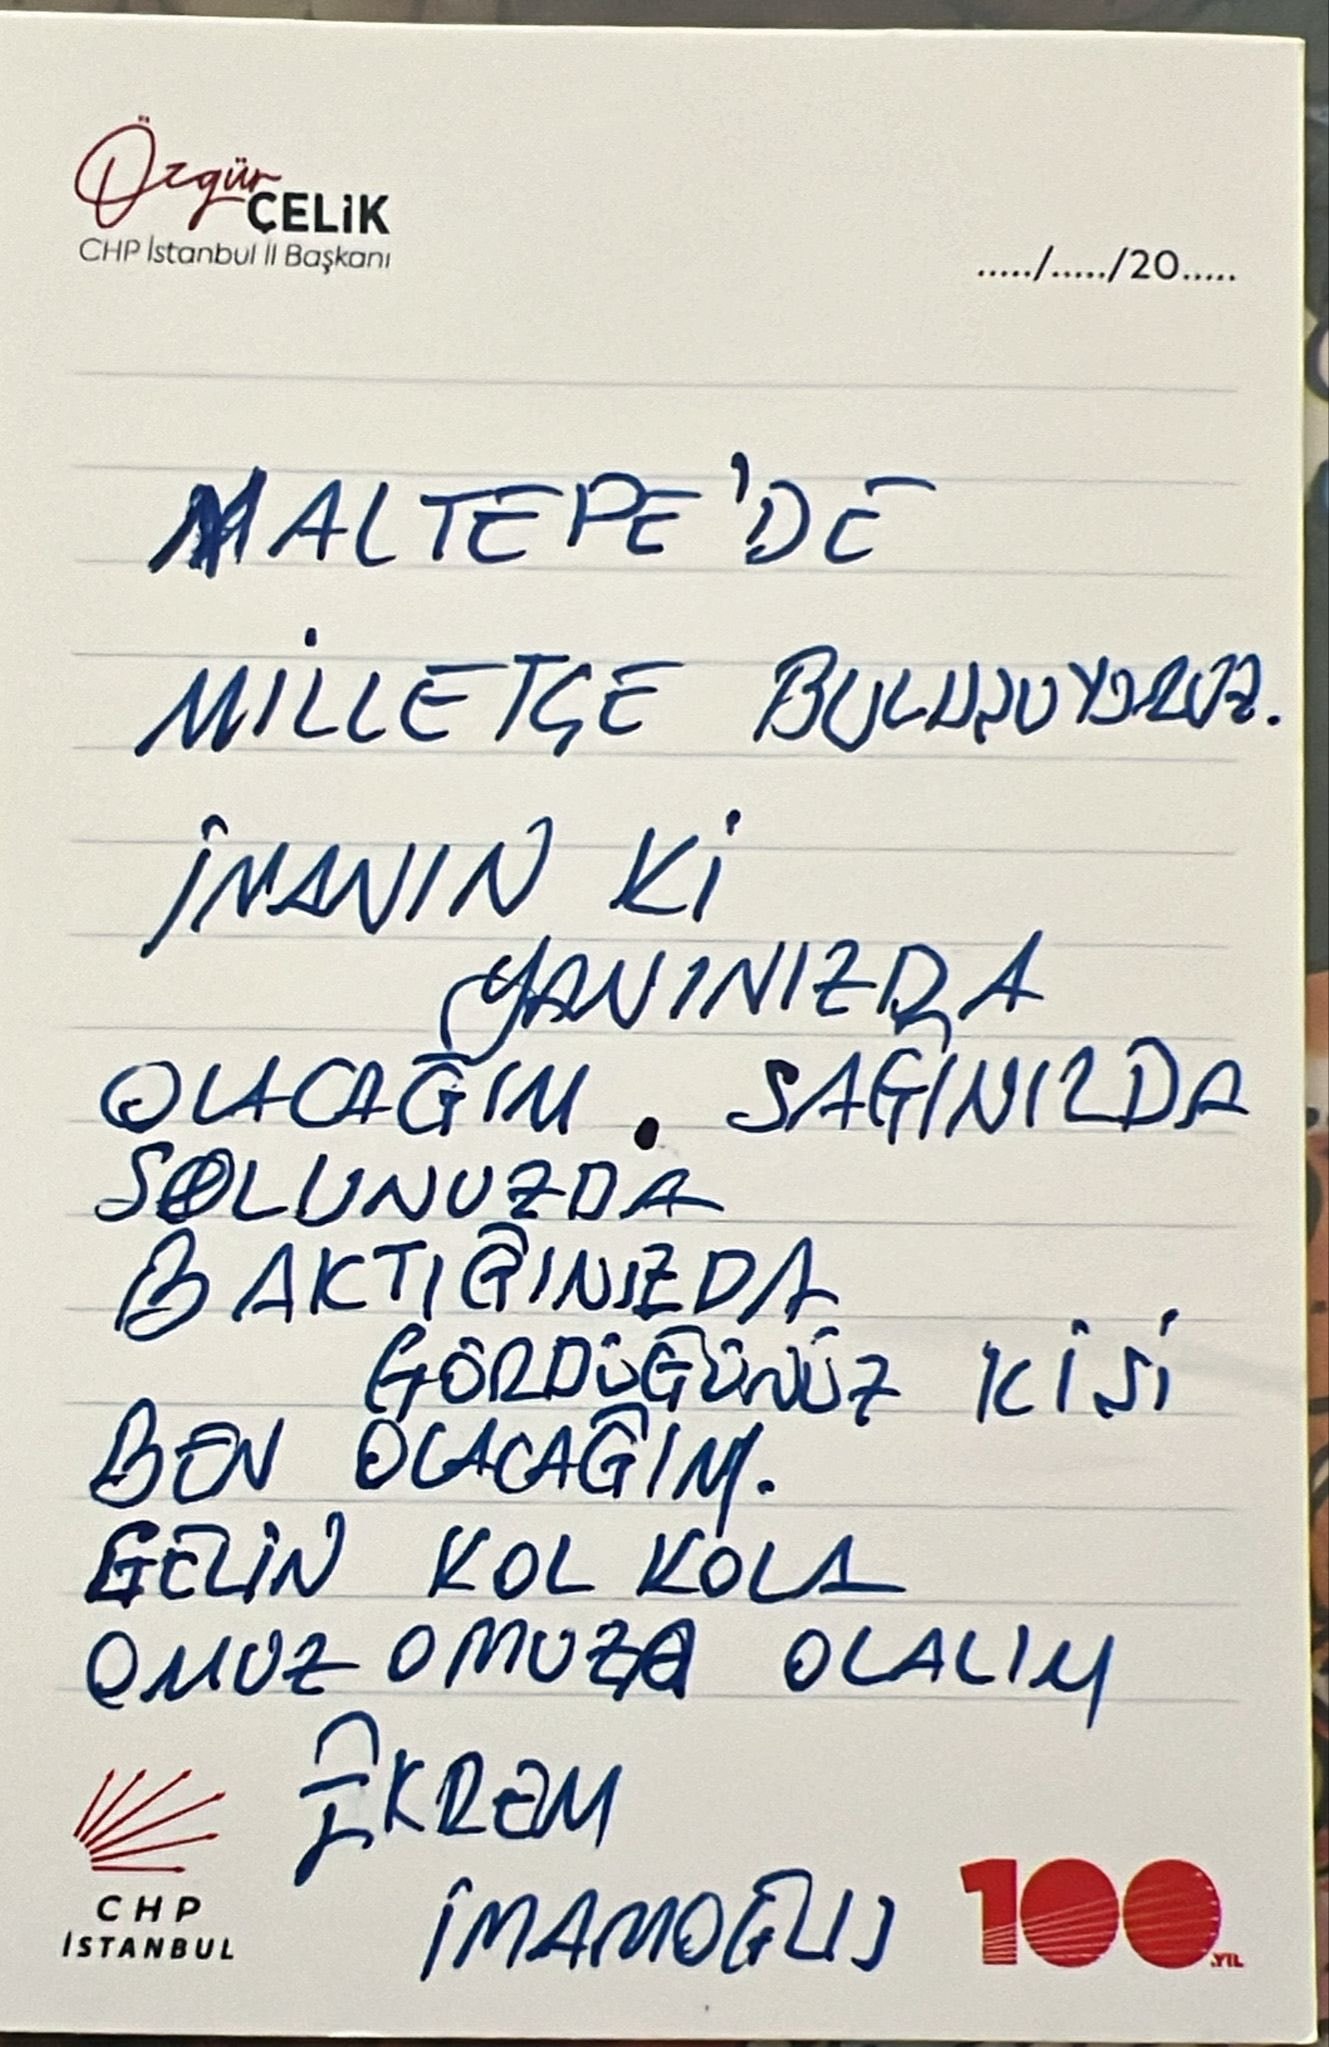 Özgür
ÇELİK
CHP İstanbul İl Başkanı
...../...../20.....
MALTEPE'DE
MİLLETÇE BULUŞUYORUZ.
İNANIN Kİ
YANINIZDA
OLACAĞIM. SAĞINIZDA
SOLUNUZDA
BAKTIĞINIZDA
GÖRDÜĞÜNÜZ KİŞİ
BEN OLACAĞIM.
GELİN KOL KOLA
OMUZ OMUZA OLALIM
EKREM
İMAMOĞLU
CHP
İSTANBUL
100.YIL